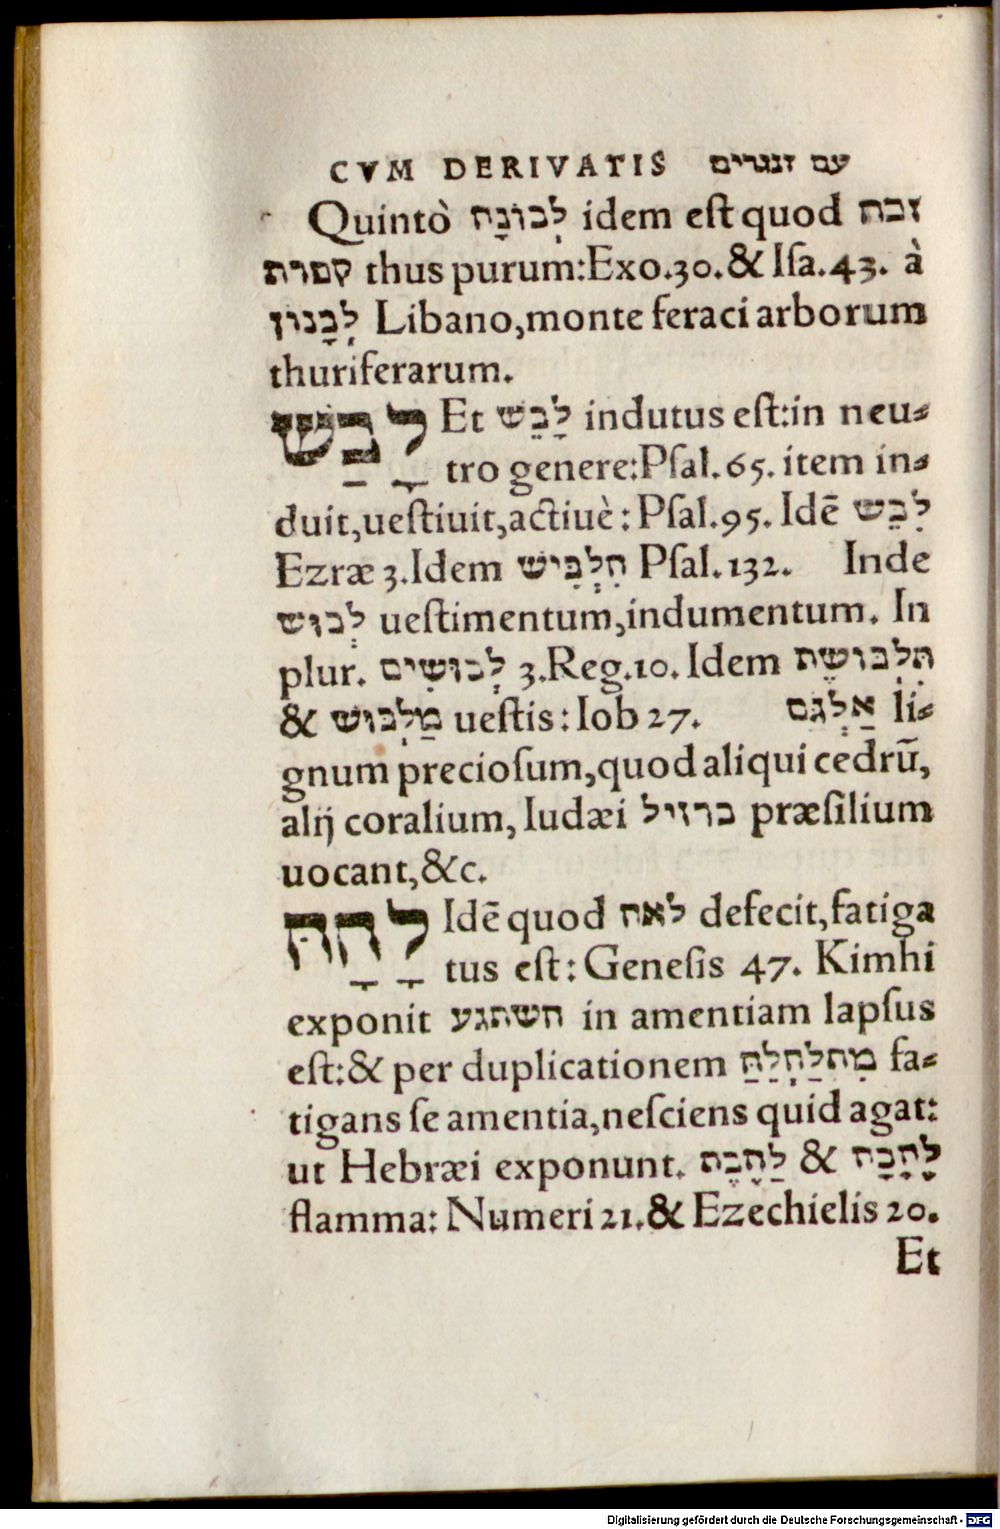 CVM DERIVATIS עם
Quintò לְבוֹנָה idem eſt quod זכה
קטרת thus purum:Exo.30.& Iſa.43. à
לְבָנוֹן Libano,monte feraci arborum
thuriferarum.
לָבַשׁ Et לָבֵשׁ indutus eſt:in neu⸗
tro genere:Pſal.65. item in⸗
duit,ueſtiuit,actiuè: Pſal.95. Idē לָבֵשׁ
Ezræ 3.Idem הִלְבִּישׁ Pſal.132. Inde
לְבוּשׁ ueſtimentum,indumentum. In
plur. לְבוּשִׁים 3.Reg.10. Idem תִּלְבּוֹשֶׁת
& מַלְבּוּשׁ ueſtis: Iob 27. אַלְגֹּם li⸗
gnum precioſum,quod aliqui cedrū,
alij coralium, Iudæi ברזיל præſilium
uocant,&c.
לָהָהּ Idē quod לאה defecit,fatiga
tus eſt: Geneſis 47. Kimhi
exponit השתגע in amentiam lapſus
eſt:& per duplicationem מִתְלַהְלֵהַּ fa⸗
tigans ſe amentia,neſciens quid agat:
ut Hebræi exponunt. לֶהָבָה & לַהֶבֶת
flamma: Numeri 21.& Ezechielis 20.
Et
Digitalisierung gefördert durch die Deutsche Forschungsgemeinschaft - DFG